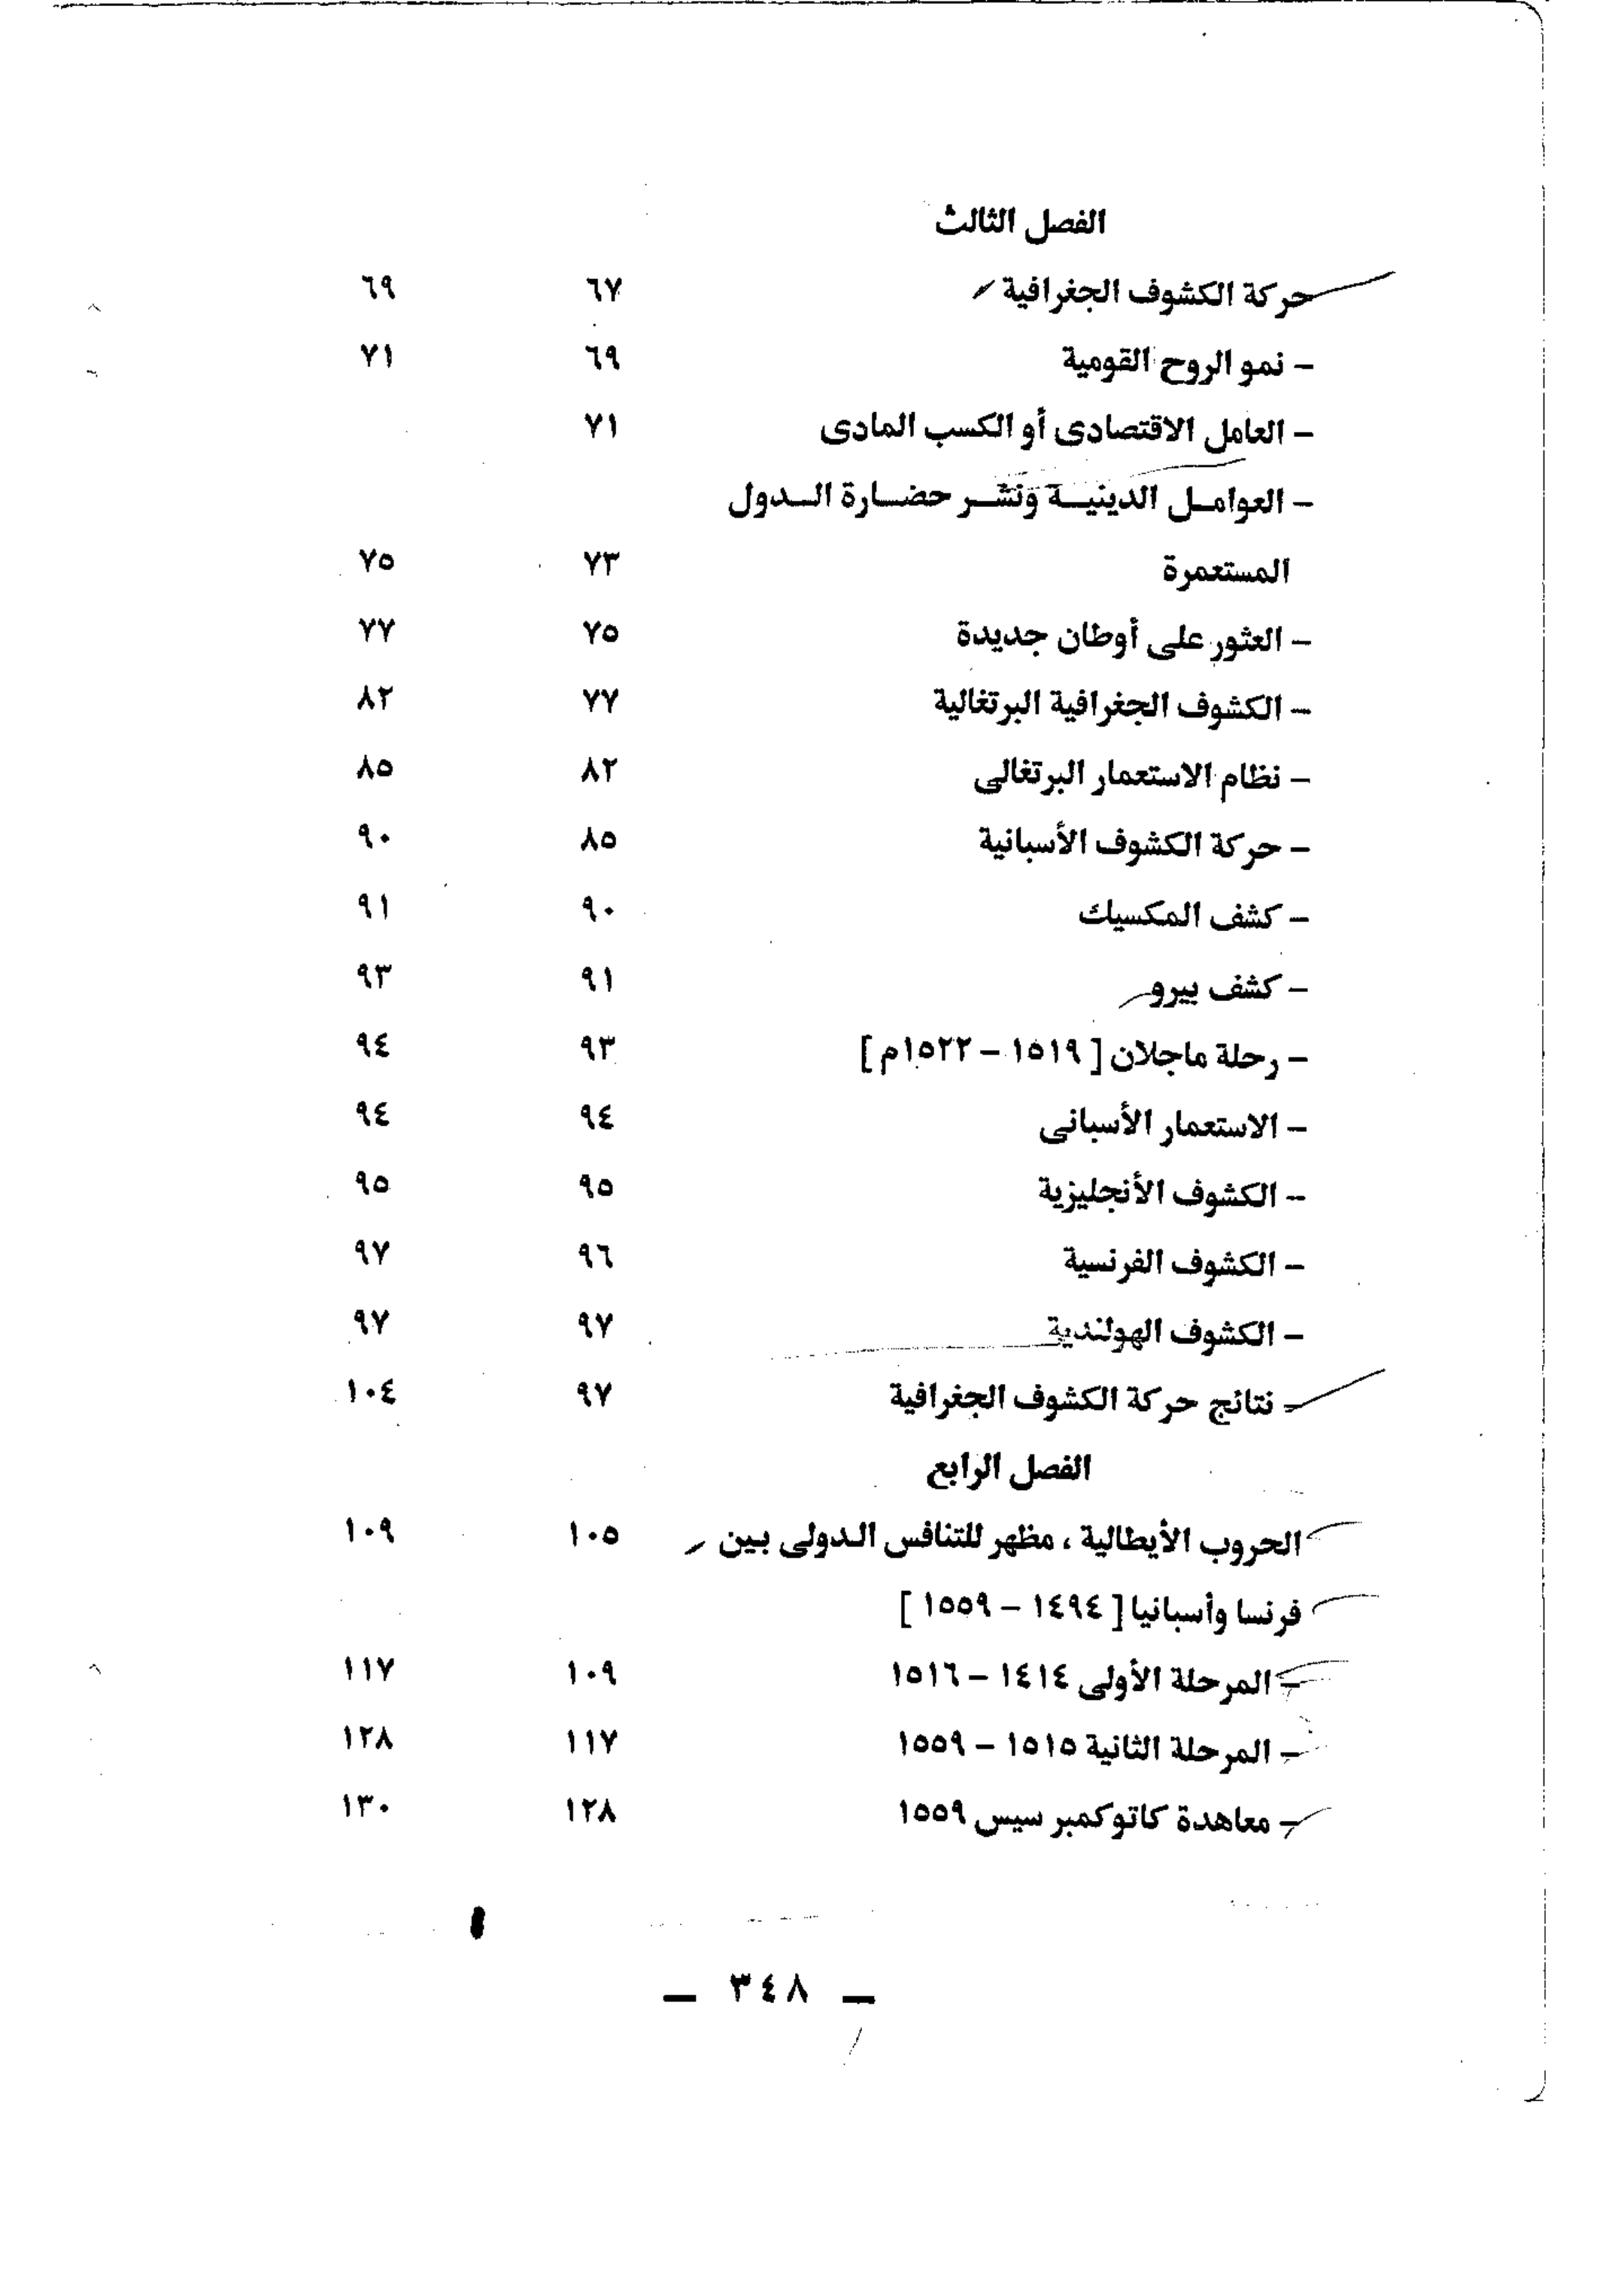 الفصل الثالث
حركة الكشوف الجغرافية ٦٧ ٦٩
– نمو الروح القومية ٦٩ ٧١
– العامل الاقتصادى أو الكسب المادى ٧١
– العوامـل الدينيـــة ونشـــر حضـــارة الـــدول
المستعمرة ٧٣ ٧٥
– العثور على أوطان جديدة ٧٥ ٧٧
– الكشوف الجغرافية البرتغالية ٧٧ ٨٢
– نظام الاستعمار البرتغالى ٨٢ ٨٥
– حركة الكشوف الأسبانية ٨٥ ٩٠
– كشف المكسيك ٩٠ ٩١
– كشف بيرو ٩١ ٩٣
– رحلة ماجلان [ ١٥١٩ – ١٥٢٢م ] ٩٣ ٩٤
– الاستعمار الأسبانى ٩٤ ٩٤
– الكشوف الأنجليزية ٩٥ ٩٥
– الكشوف الفرنسية ٩٦ ٩٧
– الكشوف الهولندية ٩٧ ٩٧
– نتائج حركة الكشوف الجغرافية ٩٧ ١٠٤
الفصل الرابع
الحروب الأيطالية ، مظهر للتنافس الدولى بين ١٠٥ ١٠٩
فرنسا وأسبانيا [ ١٤٩٤ – ١٥٥٩ ]
– المرحلة الأولى ١٤١٤ – ١٥١٦ ١٠٩ ١١٧
– المرحلة الثانية ١٥١٥ – ١٥٥٩ ١١٧ ١٢٨
– معاهدة كاتوكمبر سيس ١٥٥٩ ١٢٨ ١٣٠
– ٣٤٨ –